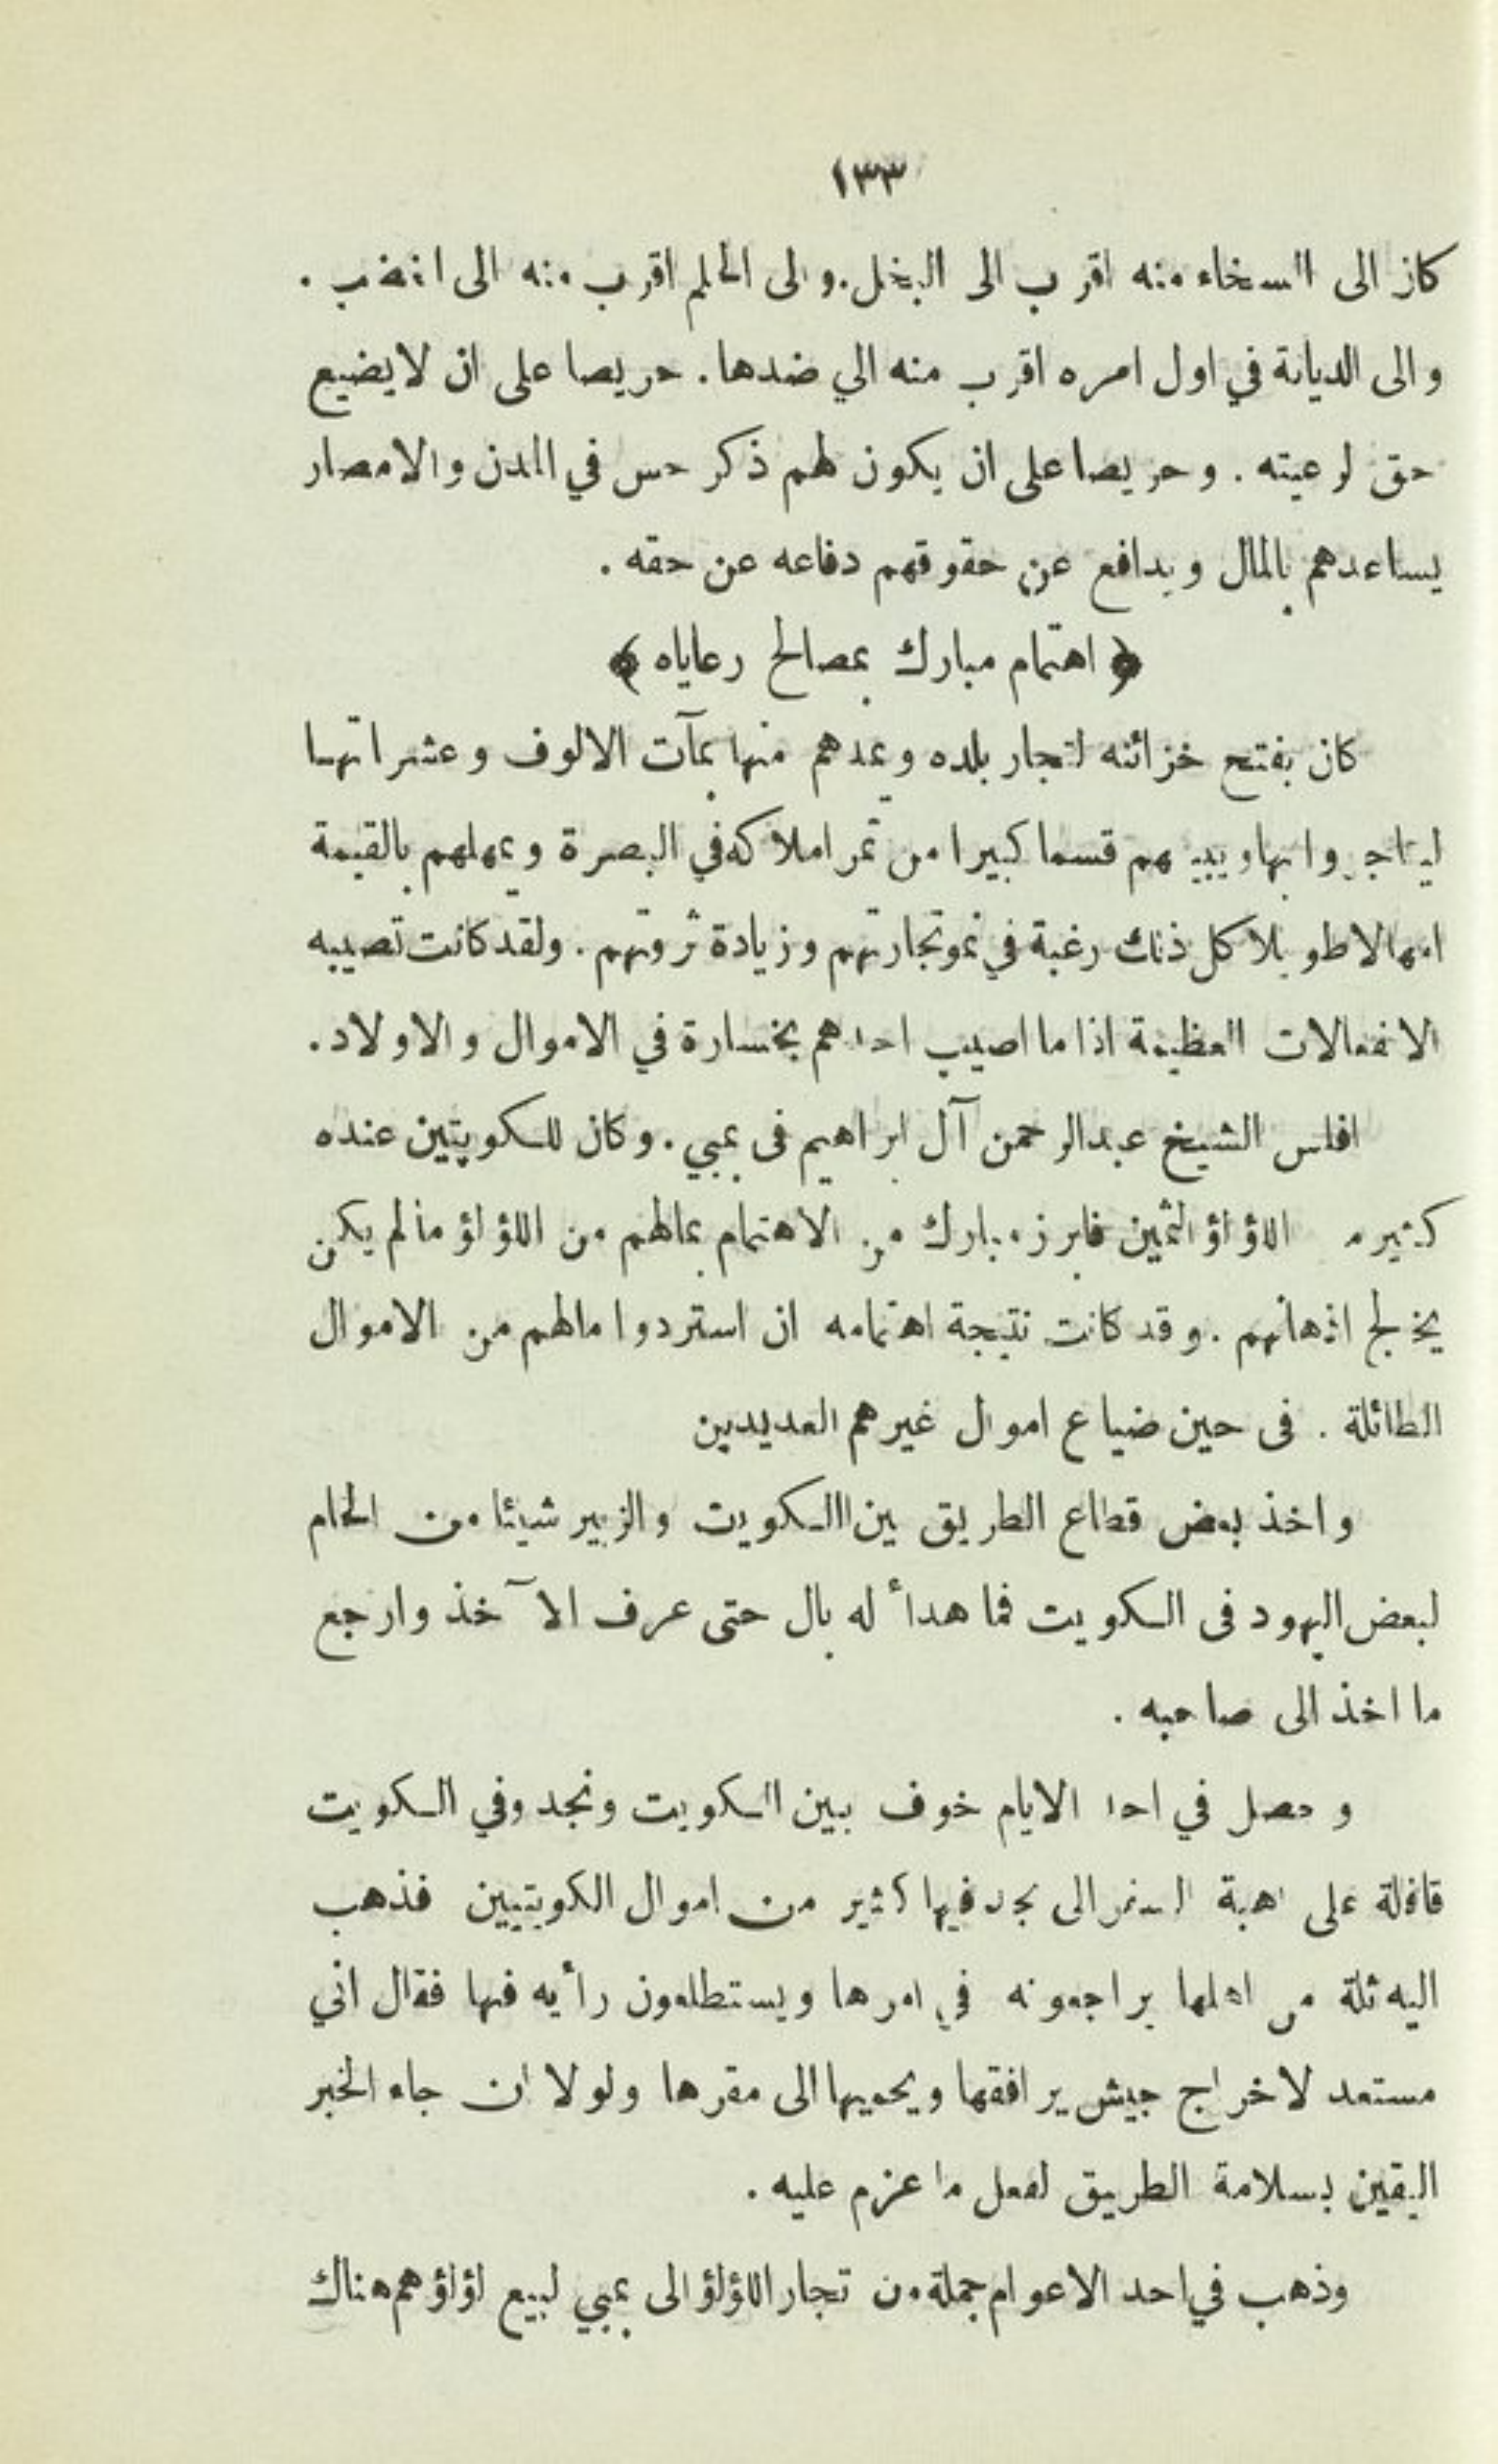 ١٣٣
كان الى السخاء منه اقرب الى البخل. والى الحلم اقرب منه الى الغضب .
والى الديانة في اول امره اقرب منه الي ضدها . حريصا على ان لا يضيع
حق لرعيته . وحريصا على ان يكون لهم ذكر حسن في المدن والامصار
يساعدهم بالمال ويدافع عن حقوقهم دفاعه عن حقه .
﴿ اهتمام مبارك بمصالح رعاياه ﴾
كان يفتح خزائنه لتجار بلده ويمدهم منها بمآت الالوف وعشراتها
ليتاجروا بها ويبيعهم قسما كبيرا من تمر املاكه في البصرة ويمهلهم بالقيمة
امهالا طويلا كل ذلك رغبة في نمو تجارتهم وزيادة ثروتهم . ولقد كانت تصيبه
الانفعالات العظيمة اذا ما اصيب احدهم بخسارة في الاموال والاولاد .
افلس الشيخ عبدالرحمن آل ابراهيم فى بمبي . وكان للكويتين عنده
كثير من اللؤلؤ الثمين فابرز مبارك من الاهتمام بمالهم من اللؤلؤ مالم يكن
يختلج اذهانهم . وقد كانت نتيجة اهتمامه ان استردوا مالهم من الاموال
الطائلة . فى حين ضياع اموال غيرهم العديدين
واخذ بعض قطاع الطريق بين الكويت والزبير شيئا من الخام
لبعض اليهود فى الكويت فما هدأ له بال حتى عرف الآخذ وارجع
ما اخذ الى صاحبه .
وحصل في احد الايام خوف بين الكويت ونجد وفي الكويت
قافلة على اهبة السفر الى نجد فيها كثير من اموال الكويتيين فذهب
اليه ثلة من اهلها يراجعونه في امرها ويستطلعون رأيه فيها فقال اني
مستعد لاخراج جيش يرافقها ويحميها الى مقرها ولولا ان جاء الخبر
اليقين بسلامة الطريق لفعل ما عزم عليه .
وذهب في احد الاعوام جملة من تجار اللؤلؤ الى بمبي لبيع لؤلؤهم هناك